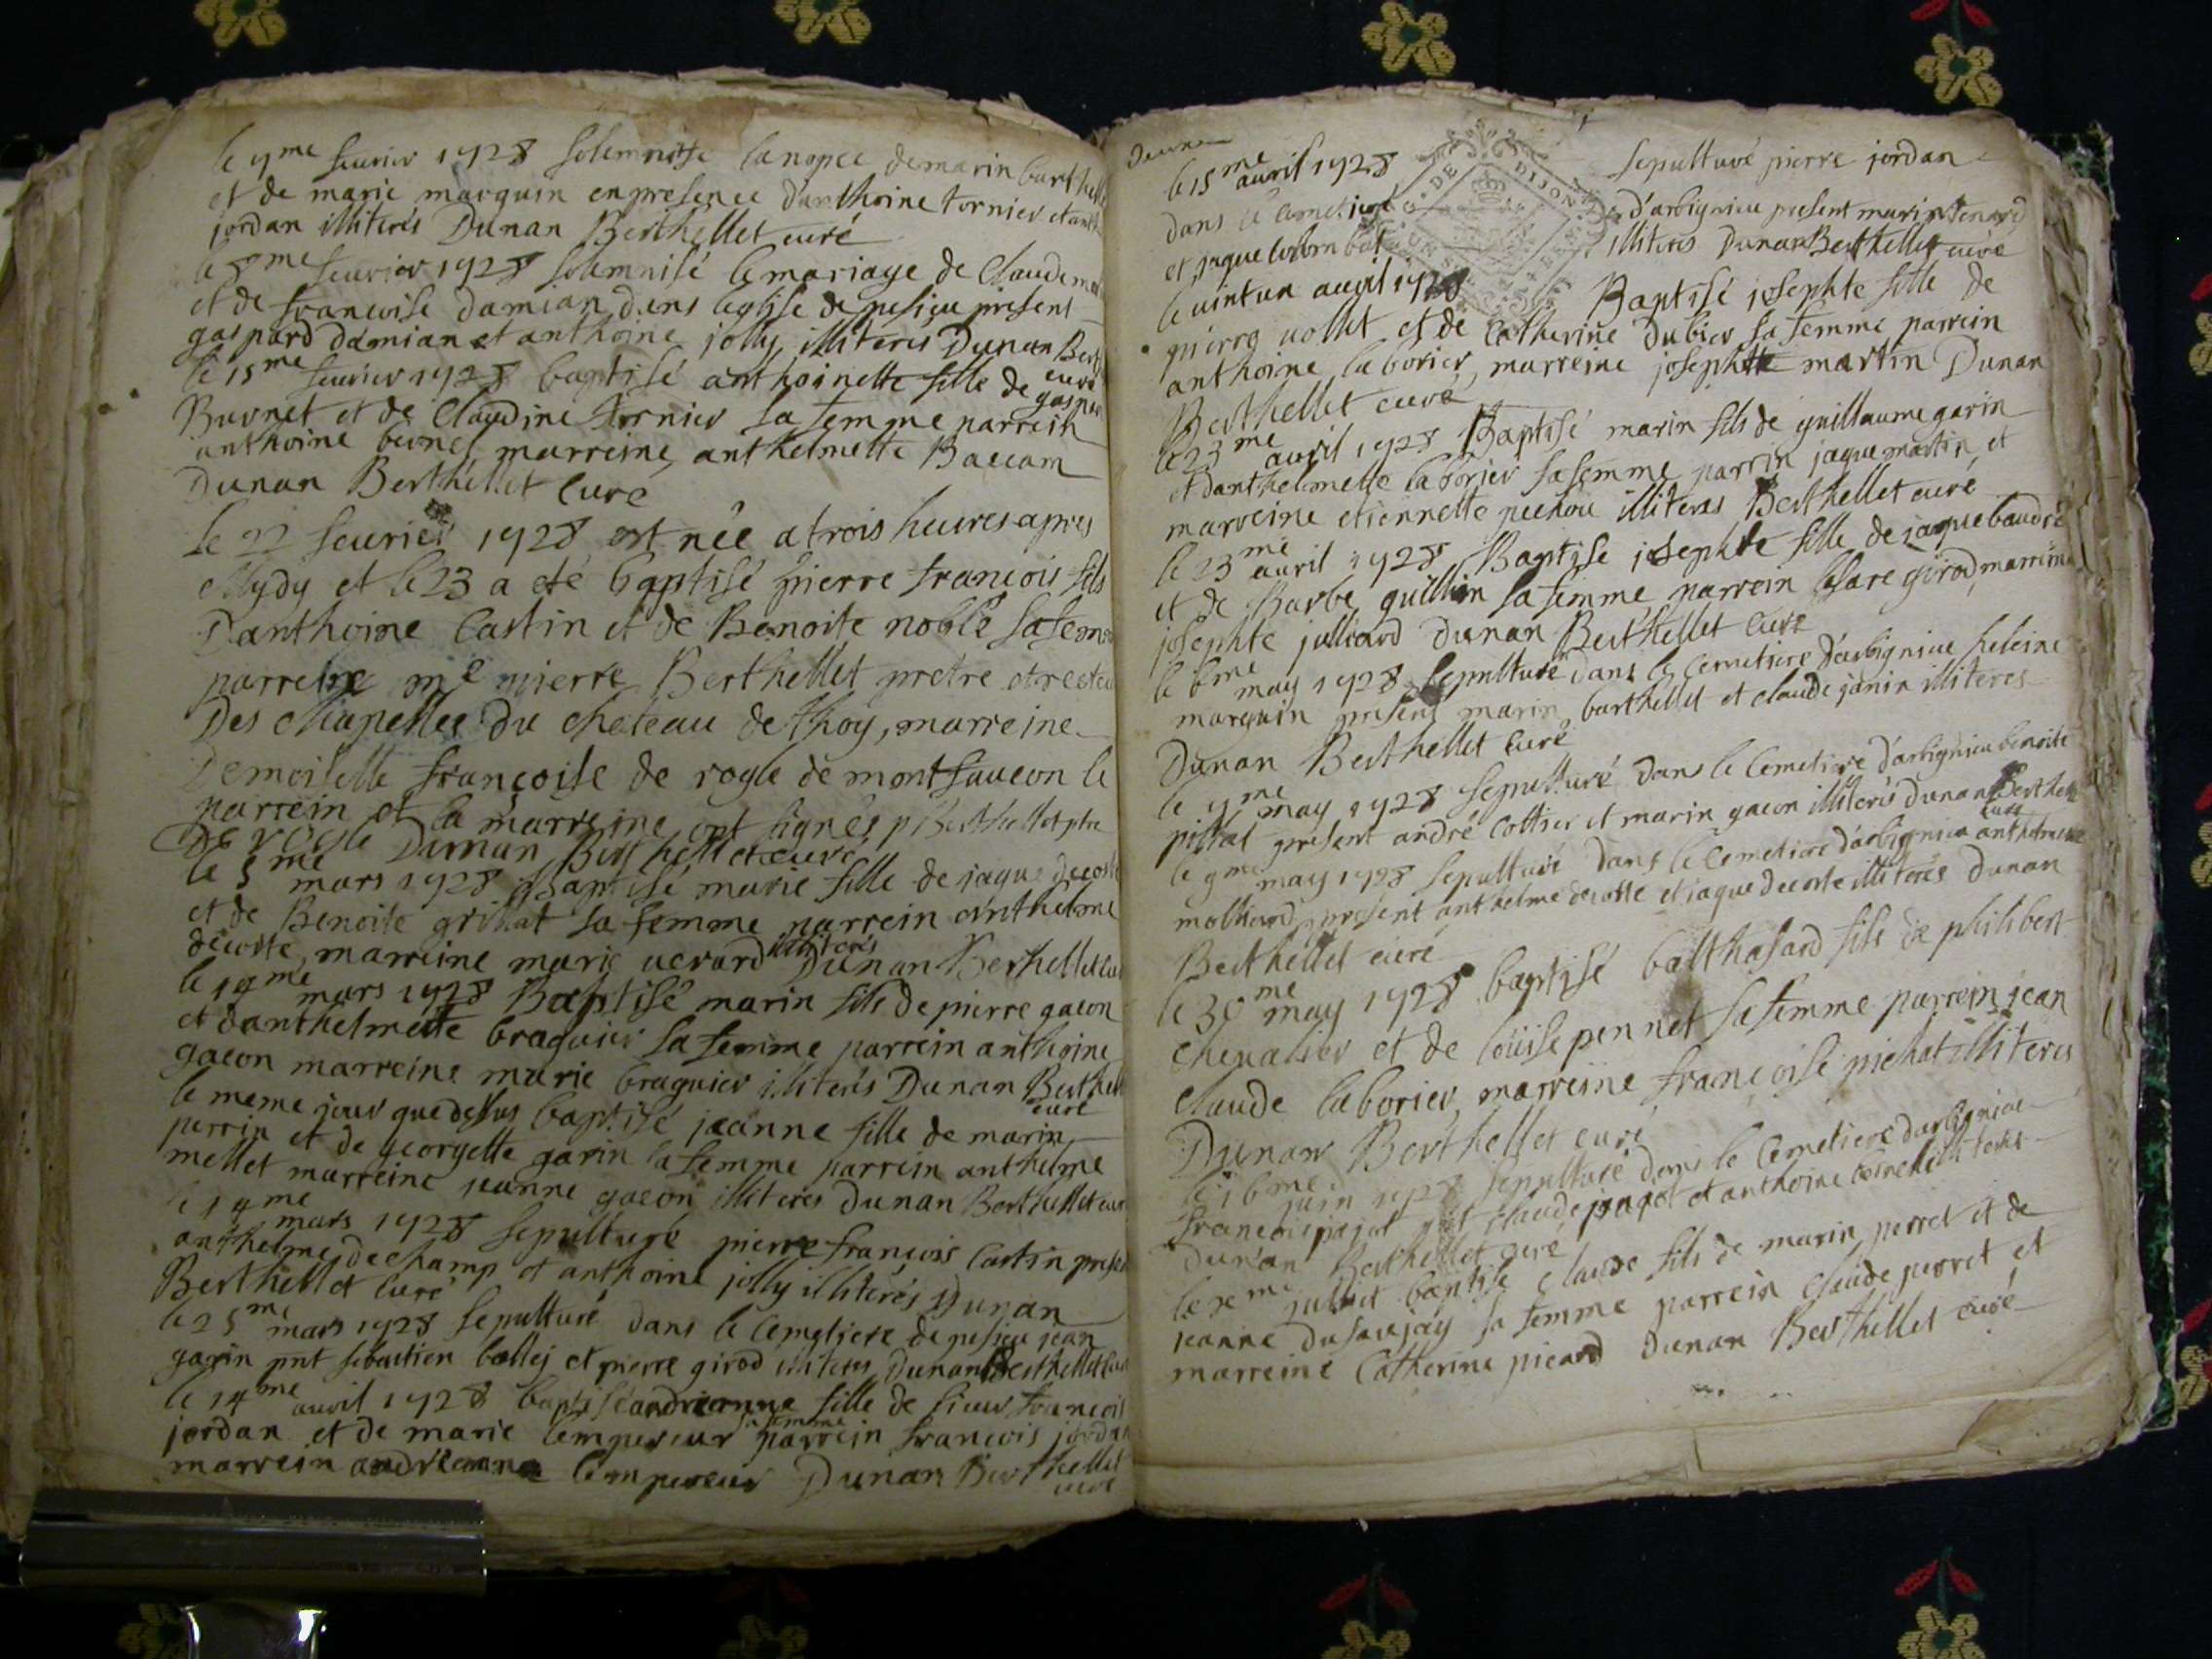 le 7me feurier 1728 solemnisé la nopce de marin barthelle
et de marie marquin en presence d'anthoine tornier et anth
jordan illiterés Dunan Berthellet curé
le 8me feurier 1728 solemnisé le mariage de Claude
et de francoise damian dans leglise de pesieu present
gaspard damian et anthoine jolly illiterés Dunan Bert
curé
le 15me feurier 1728 baptisé anthoinette fille de gaspar
Burnet et de Claudine tornier sa femme parrein
anthoine marreine anthelmette Baccam
Dunan Berthellet Curé
Le 22 feurier 1728 est née a trois heures apres
Mydy et le 23 a eté baptisé pierre francois fils
D'anthoine Castin et de Benoite noble sa femme
parreine me pierre Berthellet pretre et recteu
Des chapelles du chateau de thoy, marreine
Demoiselle françoise de rogle de montfaucon le
parrein et la marreine ont signés p Berthellet ptre
De rogle Dunan Berthellet curé
le 5me mars 1728 Baptisé marie fille de jaque decoste
et de Benoite grillat sa femme parrein anthelme
decoste, marreine marie uerard illiterés Dunan Berthellet cu
le 19me mars 1728 Baptisé marin fils de pierre gacon
et danthelmette braguier sa femme parrein anthoine
gacon marreine marie braguier illiterés Dunan Berthell
curé
le meme jour que dessus baptisé jeanne fille de marin
perrin et de georgette garin sa femme parrein anthelme
mellet marreine jeanne gacon illiteres Dunan Berthellet cur
le 19me mars 1728 sepulturé pierre francois Castin prese
anthelme dechamp et anthoine jolly illiterés Dunan
Berthellet Curé
le 25me mars 1728 sepulturé dans le Cemetiere de pesieu jean
garin pnt sebastien ballej et pierre girod illiteres Dunan Berthellet Cu
le 14me auril 1728 baptisé andréanne fille de sieur francois
jordan et de marie Lempereur sa femme parrein francois jordan
marrein andréanne Lempereur Dunan Berthellet
curé
le 15me auril 1728 sepulturé pierre jordan
dans le Cemetiere d'arbignieu present marin tenard
et jaque Colombat illiteres Dunan Berthellet curé
DE DIJON
le uint un auril 1728 Baptisé josephte fille de
pierre uollet et de Catherine dubier sa femme parrein
anthoine laborier, marreine josephte martin Dunan
Berthellet curé
le 23me auril 1728 Baptisé marin fils de guillaume garin
et danthelmette laborier sa femme parrin jaque martin et
marreine etiennette pechou illiteres Berthellet curé
le 23me auril 1728 Baptise josephte fille de jaque baudré
et de Barbe guillin sa femme parrein Cesare girod marreine
josephte julliard Dunan Berthellet Curé
le 6me may 1728 sepulturé dans le Cemetiere d'arbignieu heleine
marquin present marin barthellet et claude janin illiteres
Dunan Berthellet Curé
le 7me may 1728 sepulturé dans le Cemetiere d'arbignieu benoite
pillat present andré Cottier et marin gacon illiterés dunan Berthell
Curé
le 9me may 1728 sepulturé dans le Cemetiere d'arbignieu anthelmette
molliard present anthelme decoste et jaque decoste illiterés Dunan
Berthellet curé
le 30me may 1728 baptisé balthasard fils de philibert
Cheualier et de loüise pennet sa femme parrein jean
claude laborier, marreine françoise pichat illiteres
Dunan Berthellet curé
le 16me juin 1728 sepulturé dans le Cemetiere darbignieu
francois pajot pnt claude pajot et anthoine illiterés
Dunan Berthellet curé
juillet baptisé claude fils de marin perret et de
jeanne dusaujay sa femme parrein claude perret et
marreine Catherine picard Dunan Berthellet curé